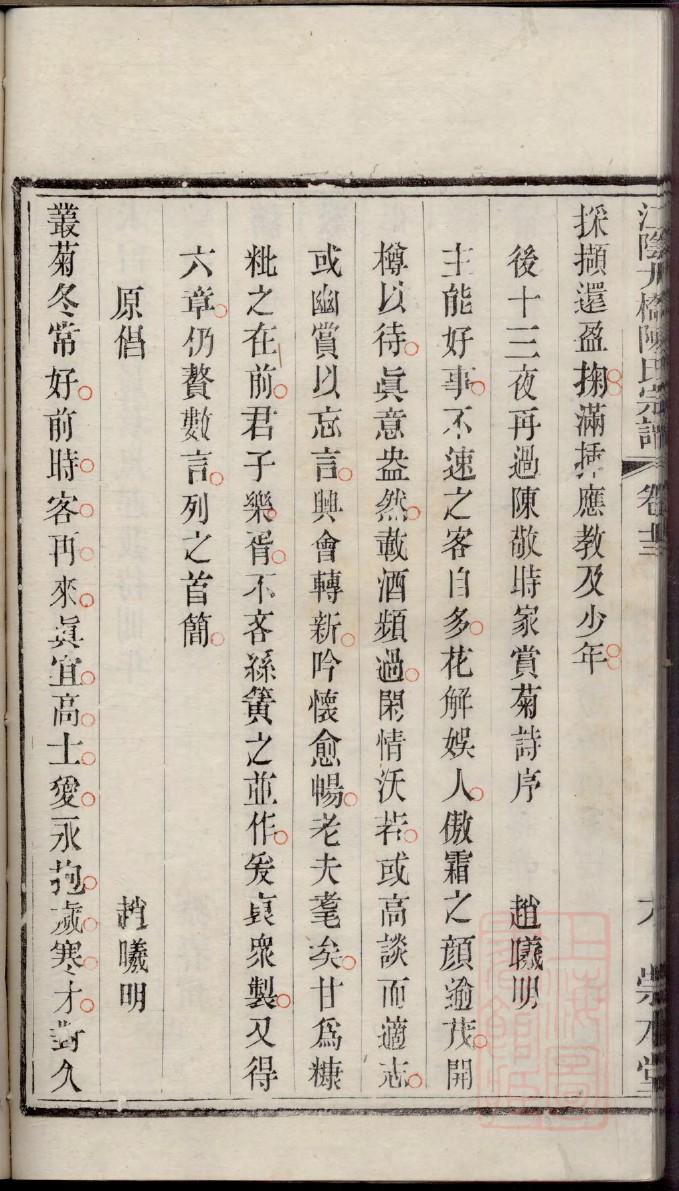 江陰九橋陳氏宗譜 卷 九
採擷還盈掬滿揷應教及少年
後十三夜再過陳敬時家賞菊詩序 趙曦明
主能好事不速之客自多花解娛人傲霜之顏逾茂開
樽以待眞意盎然載酒頻過閑情沃若或高談而適志
或幽賞以忘言興會轉新吟懷愈暢老夫耄矣甘爲糠
粃之在前君子樂胥不吝絲簧之並作爰裒衆製又得
六章仍贅數言列之首簡
原倡 趙曦明
叢菊冬常好前時客再來眞宜高士愛永抱歲寒才對久